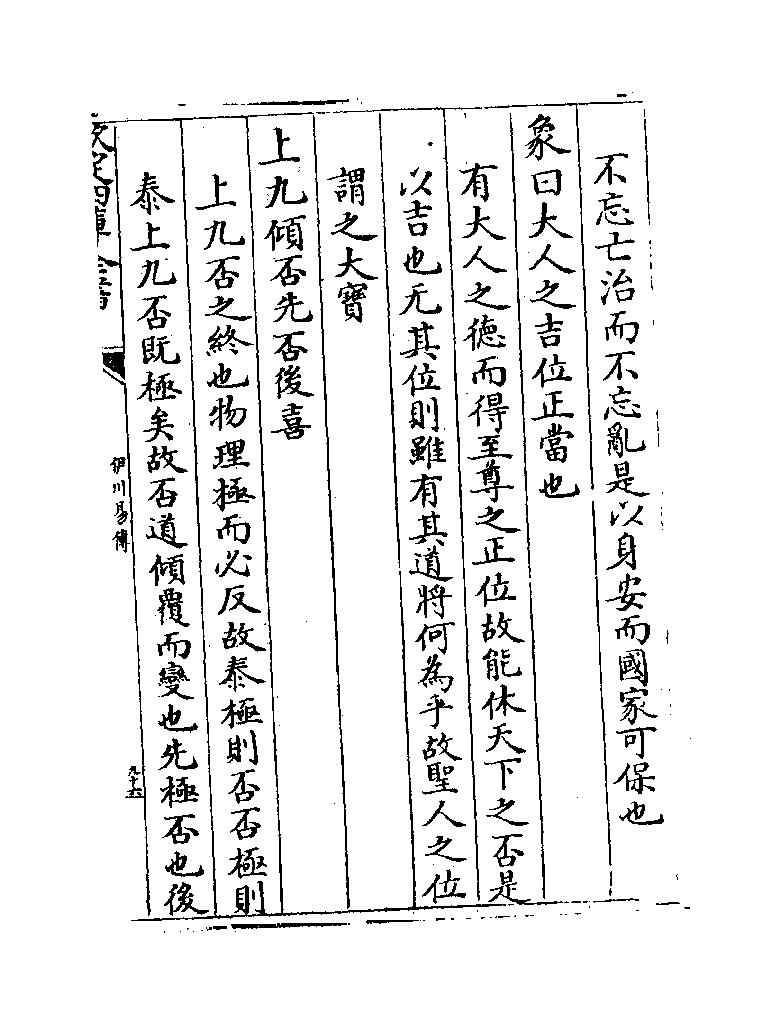 不忘亡治而不忘亂是以身安而國家可保也
象曰大人之吉位正當也
有大人之德而得至尊之正位故能休天下之否是
以吉也无其位則雖有其道將何為乎故聖人之位
謂之大寶
上九傾否先否後喜
上九否之終也物理極而必反故泰極則否否極則
泰上九否既極矣故否道傾覆而變也先極否也後
欽定四庫全書
伊川易傳
九十六